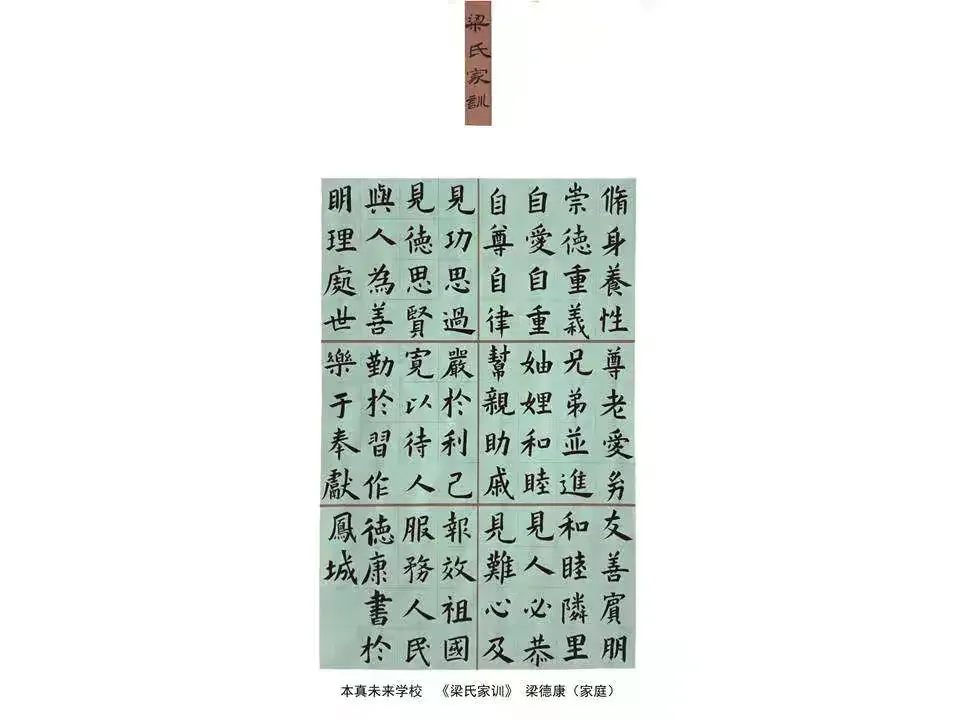 梁氏家訓
脩身養性
崇徳重義
自愛自重
自尊自律
見功思過
見徳思賢
與人為善
眀理處世
尊老愛㓜
兄弟並進
妯娌和睦
幫親助戚
嚴於利己
寛以待人
勤於習作
樂于奉獻
友善賓朋
和睦隣里
見人必恭
見難心及
報效祖國
服務人民
徳康書於
鳳城
本真未来学校 《梁氏家训》 梁德康（家庭）